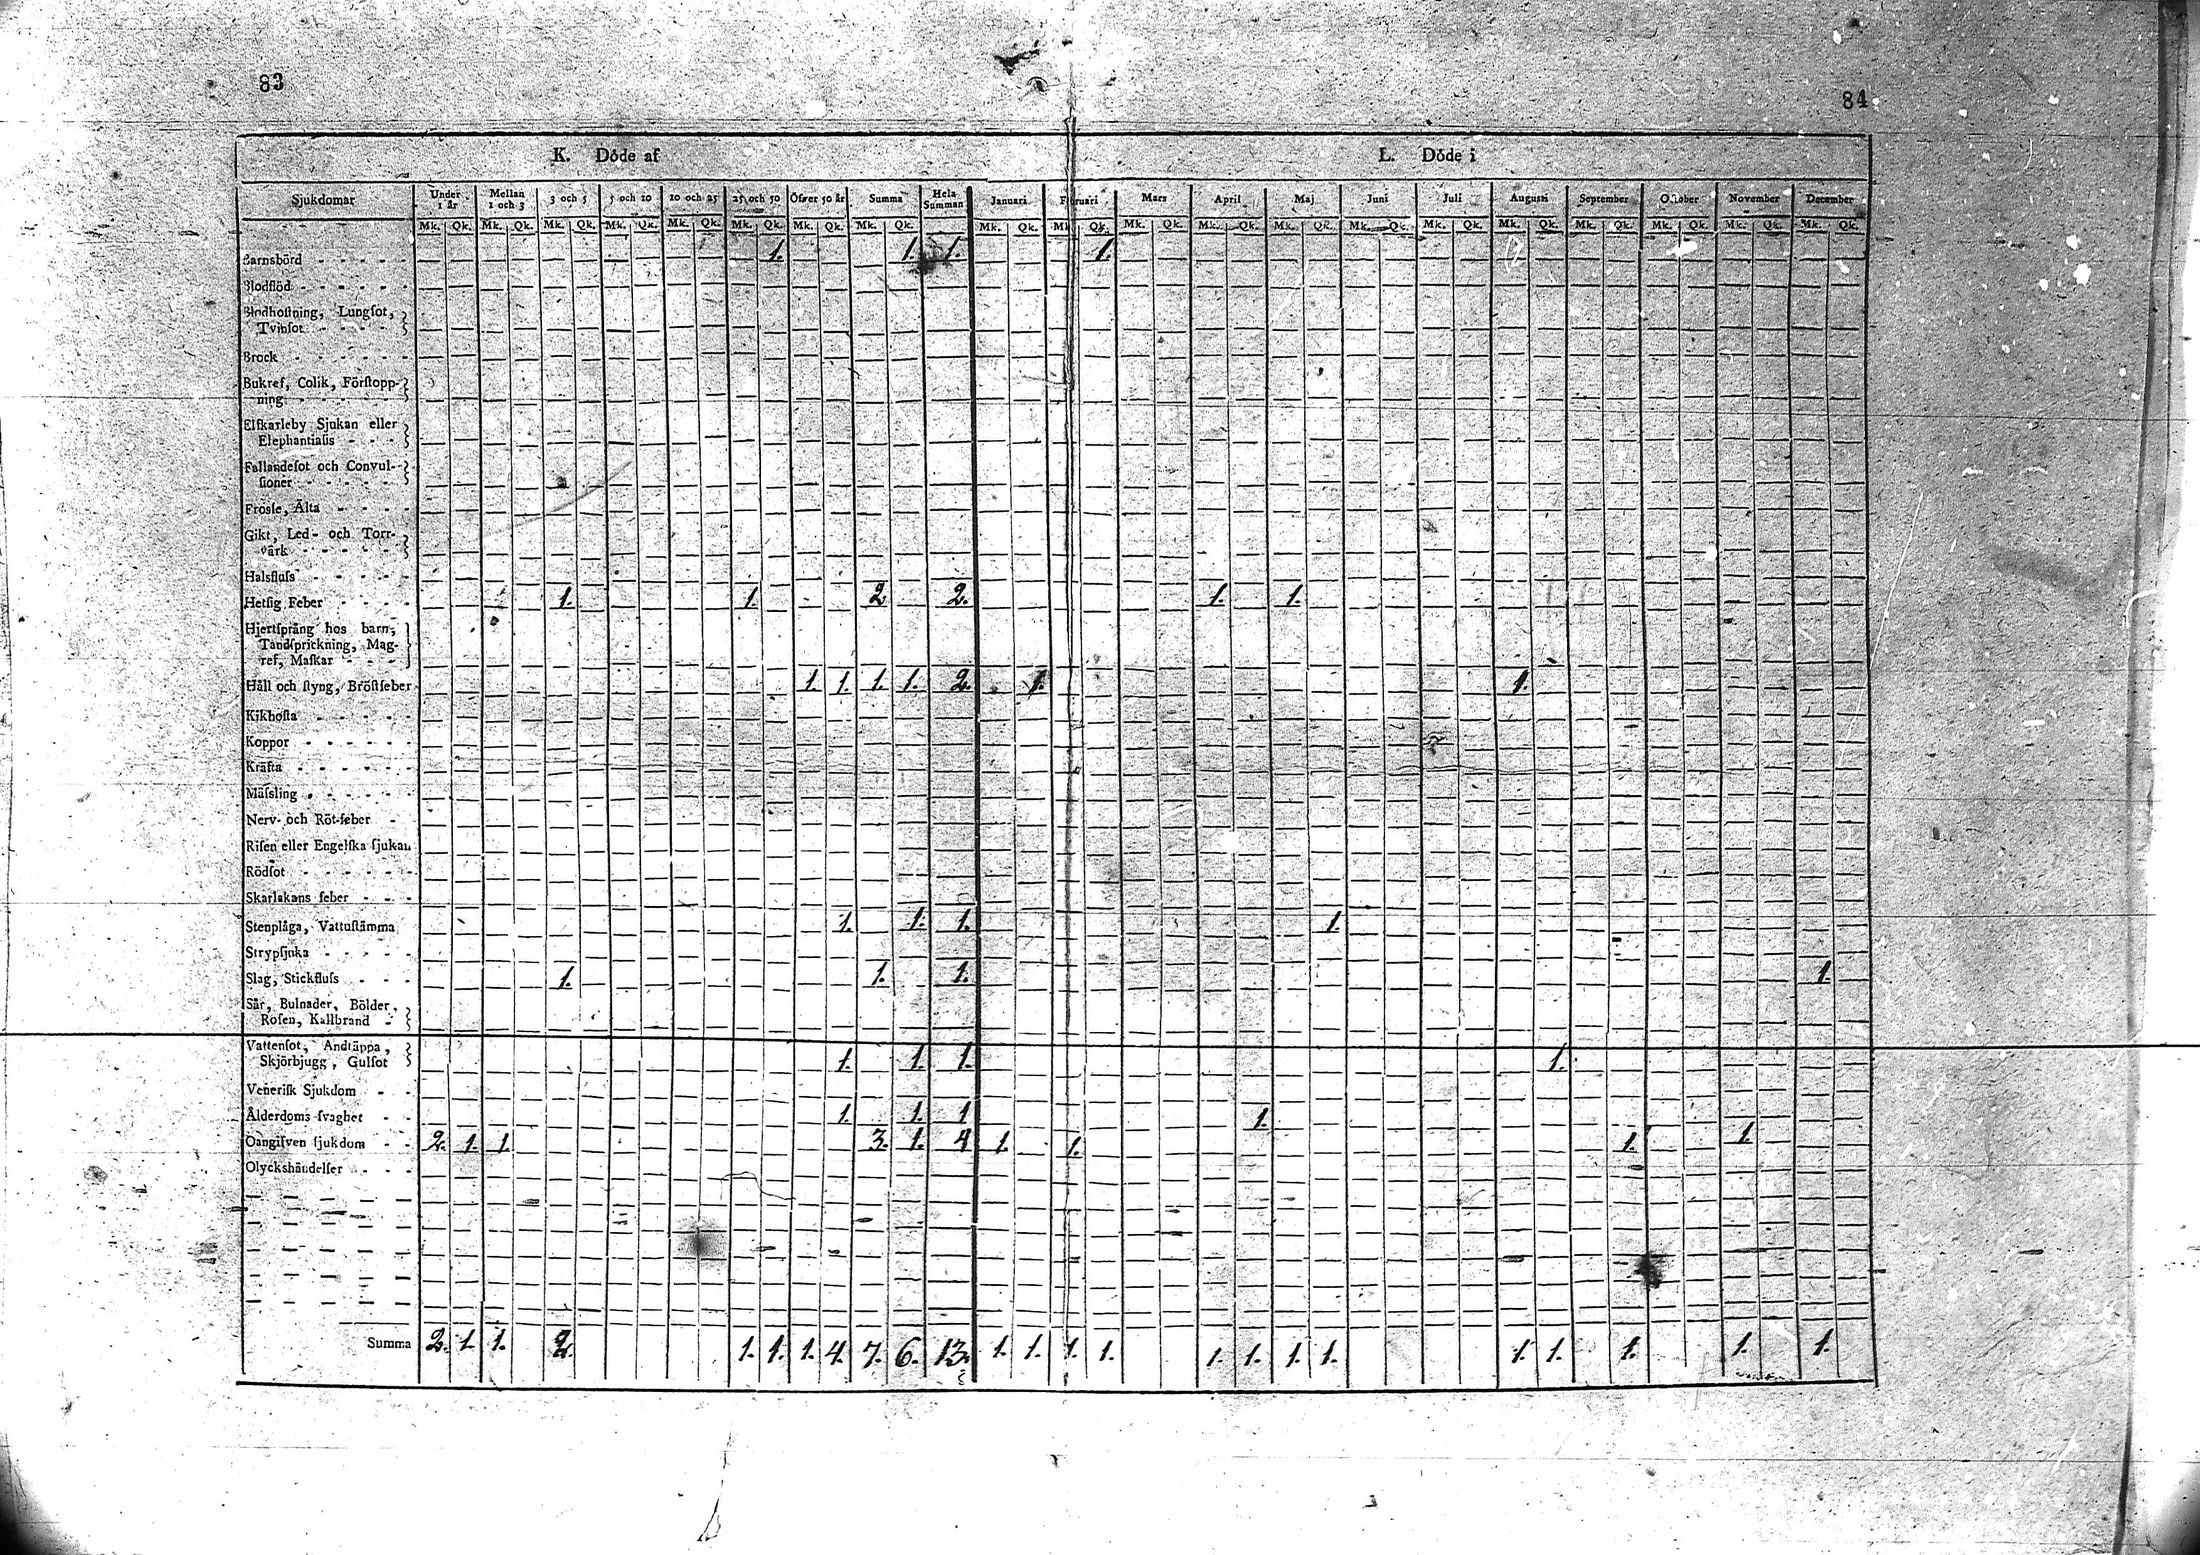 83
84
K. Döde af L. Döde i
Sjukdomar Under 1 år Mellan 1 och 3 3 och 5 5 och 10 10 och 25 25 och 50 Öfver 50 år Summa Hela Summan Januari Februari Mars April Maj Juni Juli Augusti September October November December
Mk. Qk. Mk. Qk. Mk. Qk. Mk. Qk. Mk. Qk. Mk. Qk. Mk. Qk. Mk. Qk. Mk. Qk. Mk. Qk. Mk. Qk. Mk. Qk. Mk. Qk. Mk. Qk. Mk. Qk. Mk. Qk. Mk. Qk. Mk. Qk. Mk. Qk. Mk. Qk.
Barnsbörd - - - - - 1. 1. 1. 1.
Blodflöd - - - - -
Blodhoſtning, Lungſot,
Tvinſot - - - -
Brock - - - - - -
Bukref, Colik, Förſtopp-
ning - - - - -
Elfkarleby Sjukan eller
Elephantiaſis - - -
Fallandeſot och Convul-
ſioner - - - - -
Froſſe, Älta - - - -
Gikt, Led- och Torr-
värk - - - - -
Halsfluſs - - - - -
Hetſig Feber - - - - 1. 1. 2 2. 1. 1.
Hjertſprång hos barn,
Tandſprickning, Mag-
ref, Maſkar - - -
Håll och ſtyng, Bröſtfeber 1. 1. 1. 1. 2. 1. 1.
Kikhoſta - - - - -
Koppor - - - - - -
Kräfta - - - - - -
Mäſsling - - - - - -
Nerv- och Röt-feber -
Riſen eller Engelſka ſjukan
Rödſot - - - - - -
Skarlakans feber - - -
Stenplåga, Vattuſtämma 1. 1. 1. 1.
Strypſjuka - - - - -
Slag, Stickfluſs - - - 1. 1. 1. 1.
Sår, Bulnader, Bölder,
Roſen, Kallbrand -
Vattenſot, Andtäppa,
Skjörbjugg, Gulſot 1. 1. 1. 1.
Veneriſk Sjukdom - -
Ålderdoms ſvaghet - - 1. 1. 1 1.
Oangifven ſjukdom - - 2. 1. 1. 3. 1. 4 1. 1. 1. 1.
Olyckshändelſer - - -
Summa 2. 1. 1. 2. 1. 1. 1. 4. 7. 6. 13. 1. 1. 1. 1. 1. 1. 1. 1. 1. 1. 1. 1. 1.